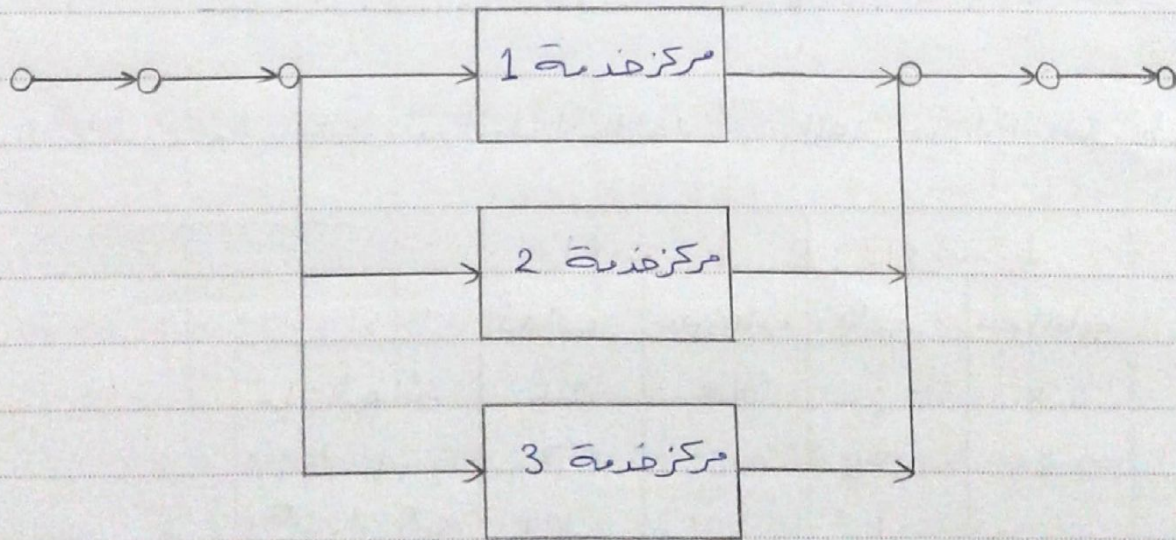 مركز خدمة 1
مركز خدمة 2
مركز خدمة 3